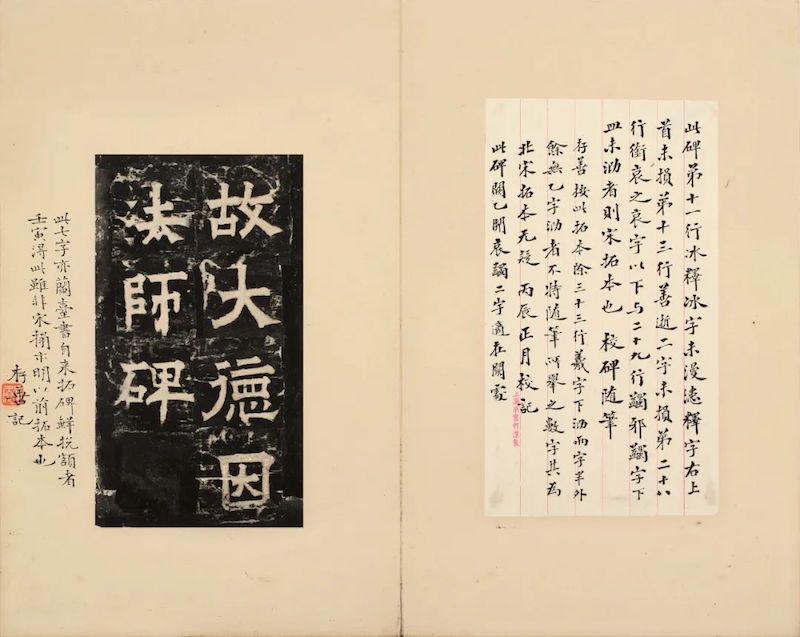 此碑第十一行冰釋冰字未漫漶釋字右上
首未損第十三行善逝二字未損第二十八
行銜哀之哀字以下与二十九行躅邪躅字下
皿未泐者則宋拓本也 校碑随筆
存善按此拓本除三十三行羲字下泐兩字半外
餘無乙字泐者不特随筆所舉之數字其為
北宋拓本无疑 丙辰正月校記
此碑闕乙開哀躅二字適在闕處
故大德因
法師碑
此七字亦蘭臺書自来拓碑鮮拓額者
壬寅得此雖非宋搨亦明以前拓本也
存善記